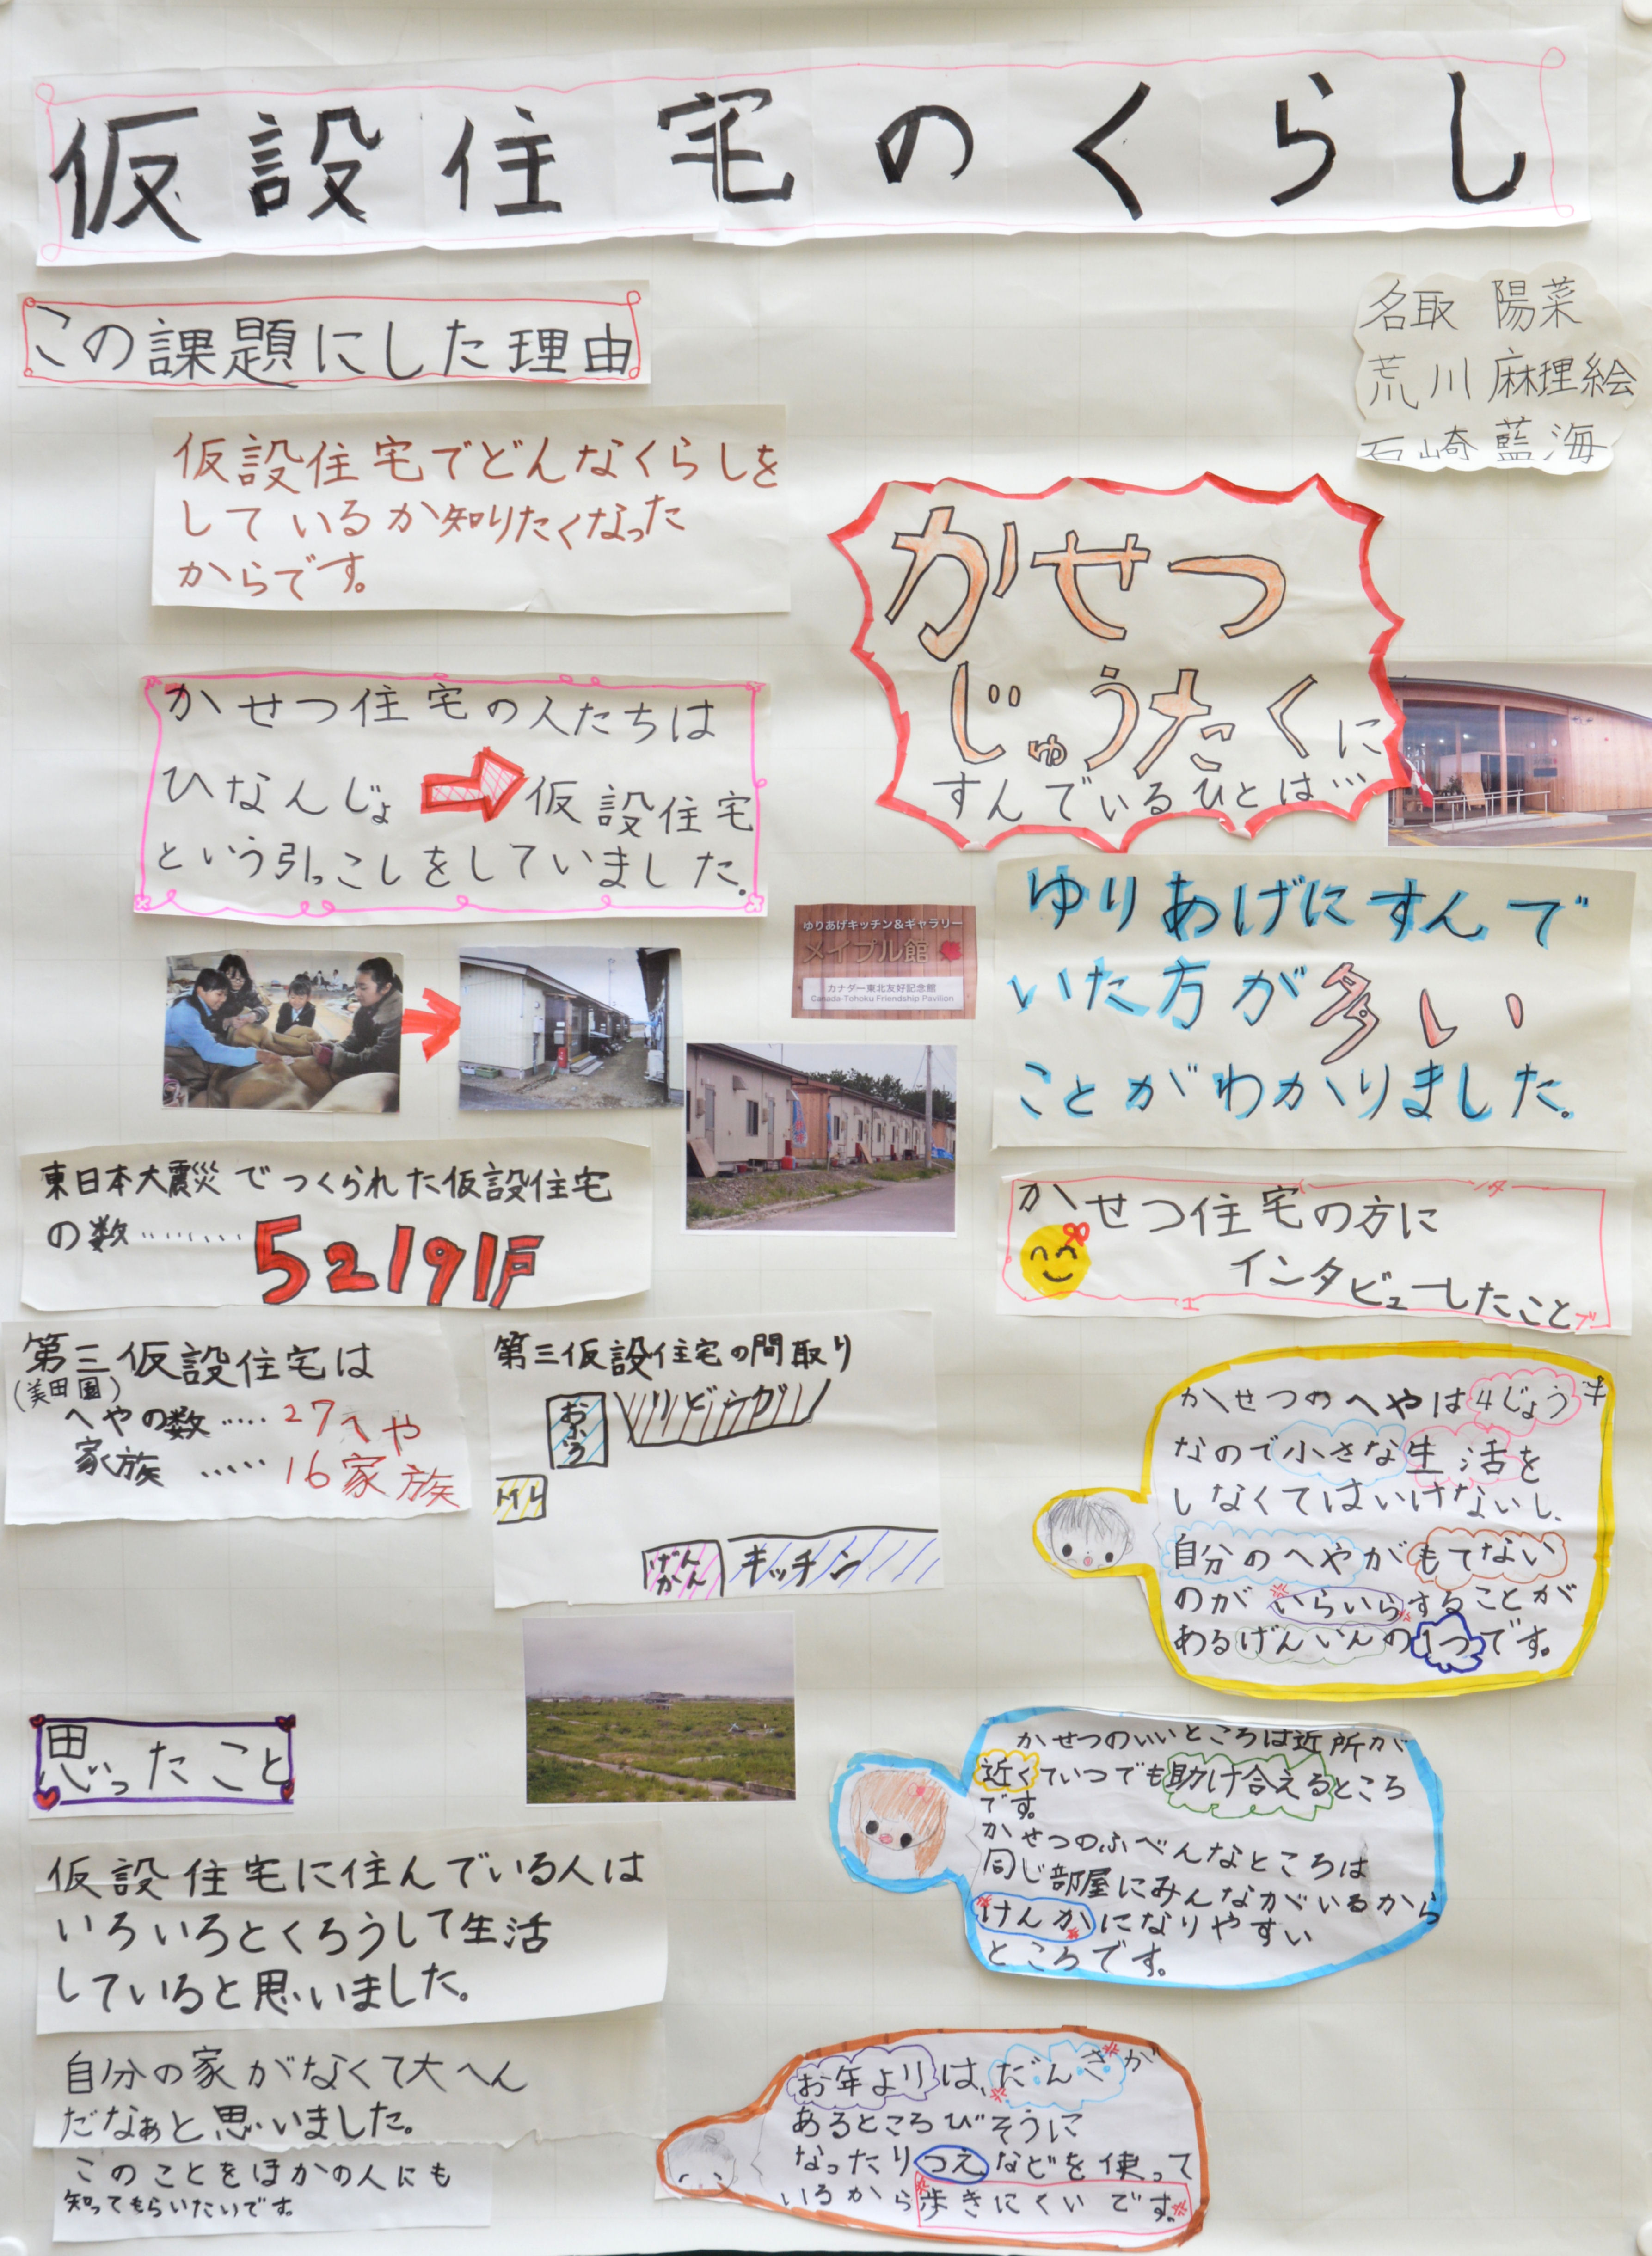 仮設住宅のくらし
名取 陽菜
荒川 麻理絵
石崎 藍海
この課題にした理由
仮設住宅でどんなくらしを
しているか知りたくなった
からです。
かせつ住宅の人たちは
ひなんじょ 仮設住宅
という引っこしをしていました。
東日本大震災でつくられた仮設住宅
の数……… 52191戸
第三仮設住宅は
(美田園)
へやの数…… 27へや
家族 …… 16家族
第三仮設住宅の間取り
おふろ
りどうが
トイレ
げんかん
キッチン
思ったこと
仮設住宅に住んでいる人は
いろいろとくろうして生活
していると思いました。
自分の家がなくて大へん
だなぁと思いました。
このことをほかの人にも
知ってもらいたいです。
かせつ
じゅうたくに
すんでいるひとは…
ゆりあげキッチン&ギャラリー
メイプル館
カナダー東北友好記念館
Canada-Tohoku Friendship Pavilion
ゆりあげにすんで
いた方が多い
ことがわかりました。
かせつ住宅の方に
インタビューしたこと
かせつのへやは4じょう半
なので小さな生活を
しなくてはいけないし、
自分のへやがもてない
のがいらいらすることが
あるげんいんの1つです。
かせつのいいところは近所が
近くていつでも助け合えるところ
です。
かせつのふべんなところは
同じ部屋にみんながいるから
けんかになりやすい
ところです。
お年よりは、だんさが
あるところびそうに
なったりつえなどを使って
いるから歩きにくいです。